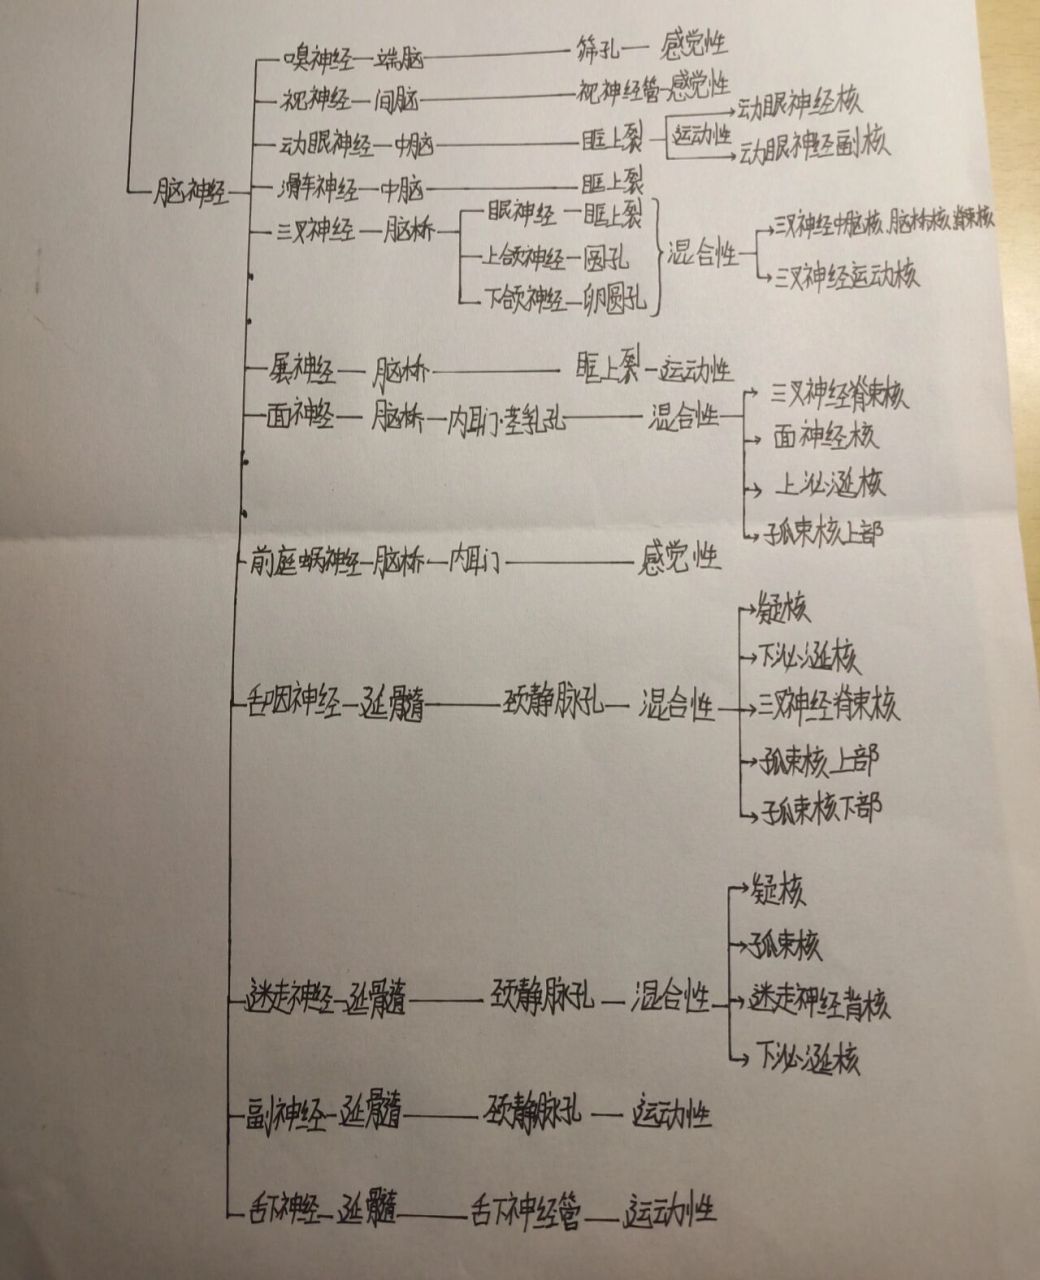 嗅神经 端脑 筛孔 感觉性
视神经 间脑 视神经管 感觉性
动眼神经 中脑 眶上裂 运动性 动眼神经核
动眼神经副核
脑神经
滑车神经 中脑 眶上裂
三叉神经 脑桥 眼神经 眶上裂 混合性 三叉神经中脑核、脑桥核、脊束核
上颌神经 圆孔
三叉神经运动核
下颌神经 卵圆孔
展神经 脑桥 眶上裂 运动性
三叉神经脊束核
面神经 脑桥 内耳门·茎乳孔 混合性
面神经核
上泌涎核
孤束核上部
前庭蜗神经 脑桥 内耳门 感觉性
疑核
下泌涎核
舌咽神经 延髓 颈静脉孔 混合性 三叉神经脊束核
孤束核上部
孤束核下部
疑核
孤束核
迷走神经 延髓 颈静脉孔 混合性 迷走神经背核
下泌涎核
副神经 延髓 颈静脉孔 运动性
舌下神经 延髓 舌下神经管 运动性